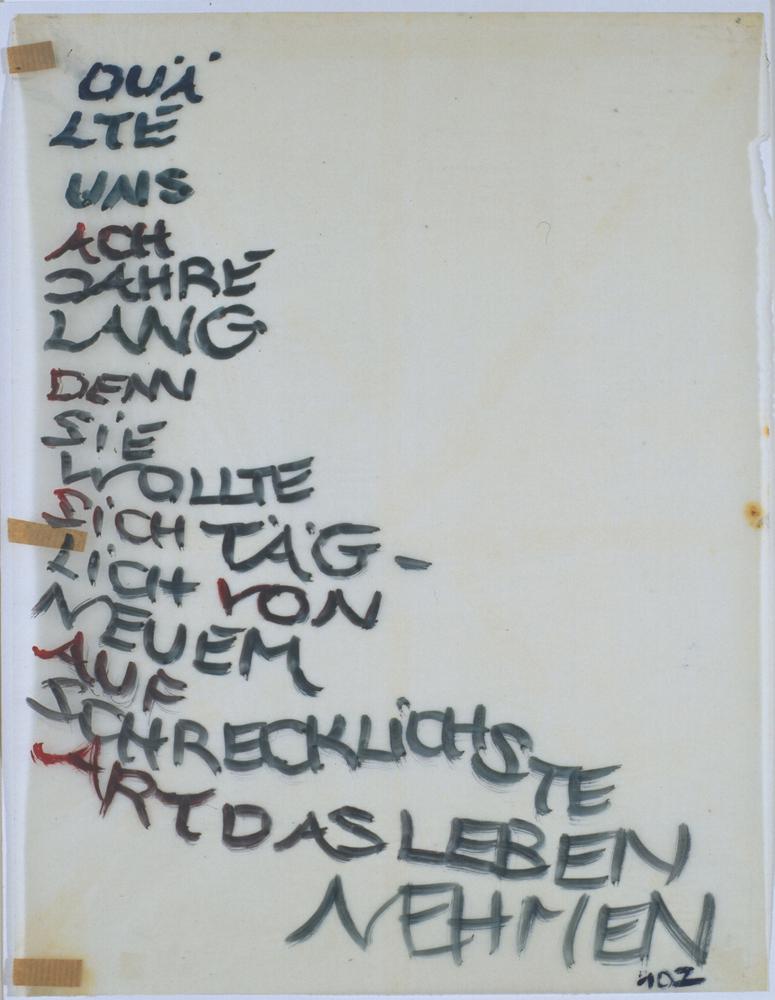 QUÄ
LTE
UNS
ACH
JAHRE
LANG
DENN
SIE
WOLLTE
SICH TÄG-
LICH VON
NEUEM
AUF
SCHRECKLICHSTE
ART DAS LEBEN
NEHMEN